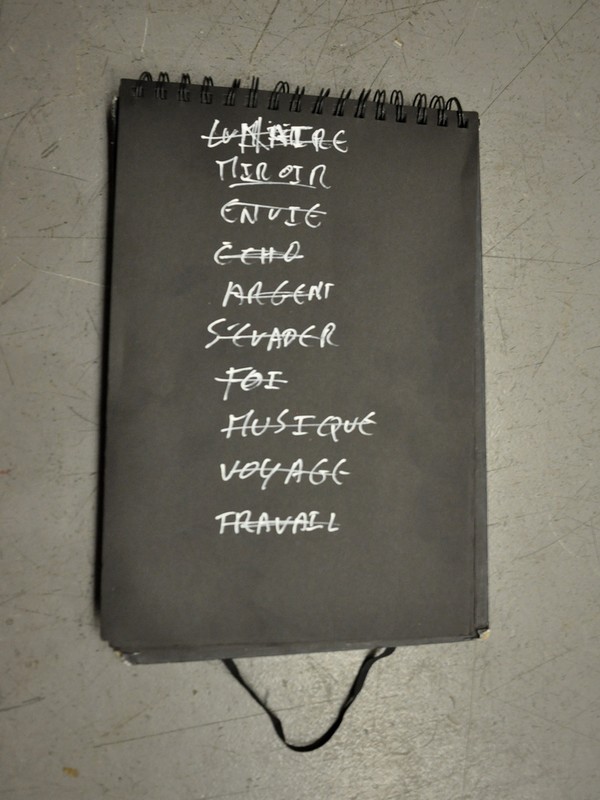 LUMAIRE
MIROIR
ENVIE
ÉCHO
ARGENT
S'ÉVADER
FOI
MUSIQUE
VOYAGE
TRAVAIL